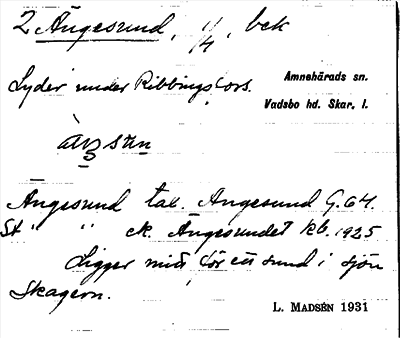 2 Ängesund, 1/4, bek
Lyder under Ribbingsfors.
Amnehärads sn.
Vadsbo hd. Skar. l.
Ängesund tax. Ängesund G.64.
St " " ek. Ängesundet kb. 1925
Ligger mitt för ett sund i sjön
Skagern.
L. MADSÉN 1931